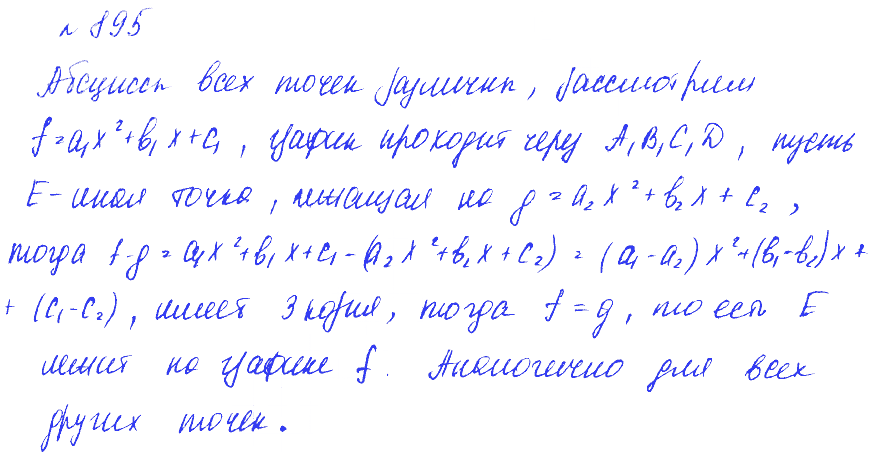 н 895
Абсциссы всех точек различны, рассмотрим
f = a₁x² + b₁x + c₁, график проходит через A, B, C, D, пусть
E - иная точка, лежащая на g = a₂x² + b₂x + c₂,
тогда f - g = a₁x² + b₁x + c₁ - (a₂x² + b₂x + c₂) = (a₁ - a₂)x² + (b₁ - b₂)x +
+ (c₁ - c₂), имеет 3 корня, тогда f = g, то есть E
лежит на графике f. Аналогично для всех
других точек.